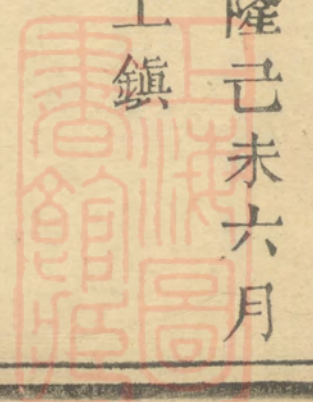 隆己未六月
上鎮
上海圖
書館藏